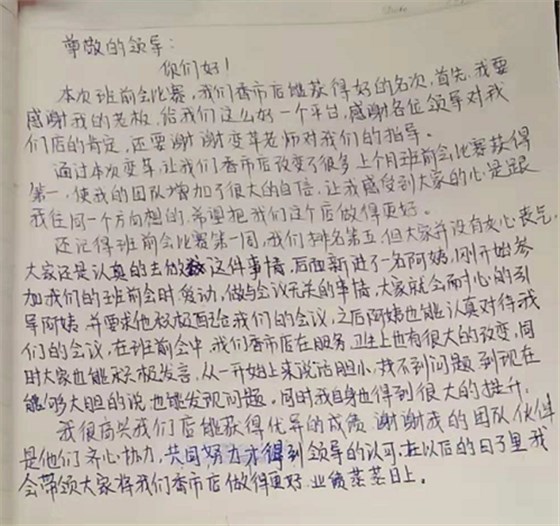 尊敬的领导：
你们好！
本次班前会比赛，我们香市店能获得好的名次，首先，我要
感谢我的老板，给我们这么好一个平台，感谢各位领导对我
们店的肯定，还要谢谢变革老师对我们的指导。
通过本次变革，让我们香市店改变了很多上个月班前会比赛获得
第一，使我的团队增加了很大的自信，让我感受到大家的心是跟
我往同一个方向想的，希望把我们这个店做得更好。
还记得班前会比赛第一周，我们排名第五，但大家并没有灰心丧气，
大家还是认真的去做这件事情，后面新进了一名阿姨，刚开始参
加我们的班前会时爱动，做与会议无关的事情，大家就会耐心的引
导阿姨，并要求他积极配合我们的会议，之后阿姨也能认真对待我
们的会议，在班前会中，我们香市店在服务、卫生上也有很大的改变，同
时大家也能积极发言，从一开始上来说话胆小，找不到问题到现在
能够大胆的说，也能发现问题，同时我自身也得到很大的提升。
我很高兴我们店能获得优异的成绩，谢谢我的团队伙伴
是他们齐心协力，共同努力才得到领导的认可，在以后的日子里我
会带领大家将我们香市店做得更好，业绩蒸蒸日上。